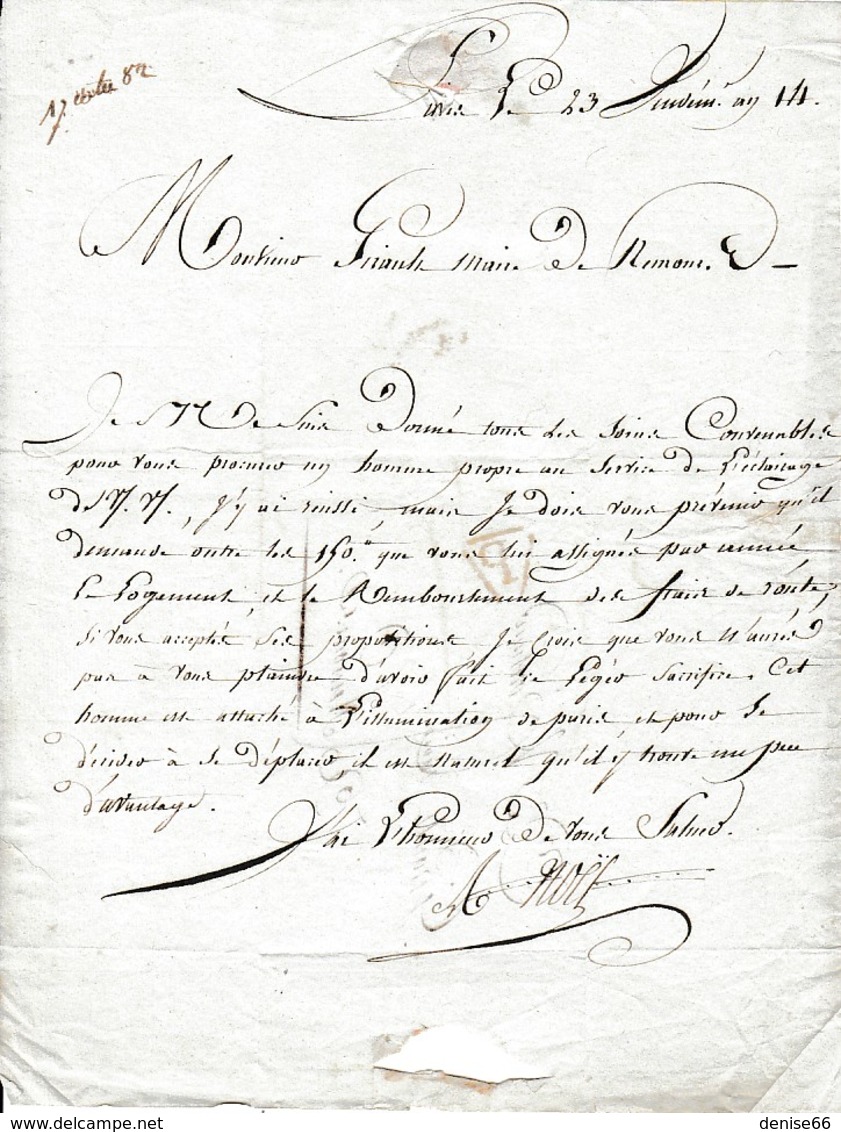 Paris Le 23 Vendém.re an 14.
Monsieur Girault Maire De Remone.
Je me Suis Donné tous les Soins Convenables
pour vous procurer un homme propre au Service de L'éclairage
J'y ai réussi, mais Je dois vous prévenir qu'il
demande outre les 150.# que vous lui assignés par année
Le Logement, et le Remboursement des frais de route,
Si vous acceptés Ses propositions Je Crois que vous n'aurés
pas à vous plaindre d'avoir fait ce Léger Sacrifice. Cet
homme est attaché à L'illumination de paris et pour Se
décider à Se déplacer, il est Naturel qu'il y trouve un peu
d'avantage.
J'ai L'honneur De vous Saluer.
Noël
denise66